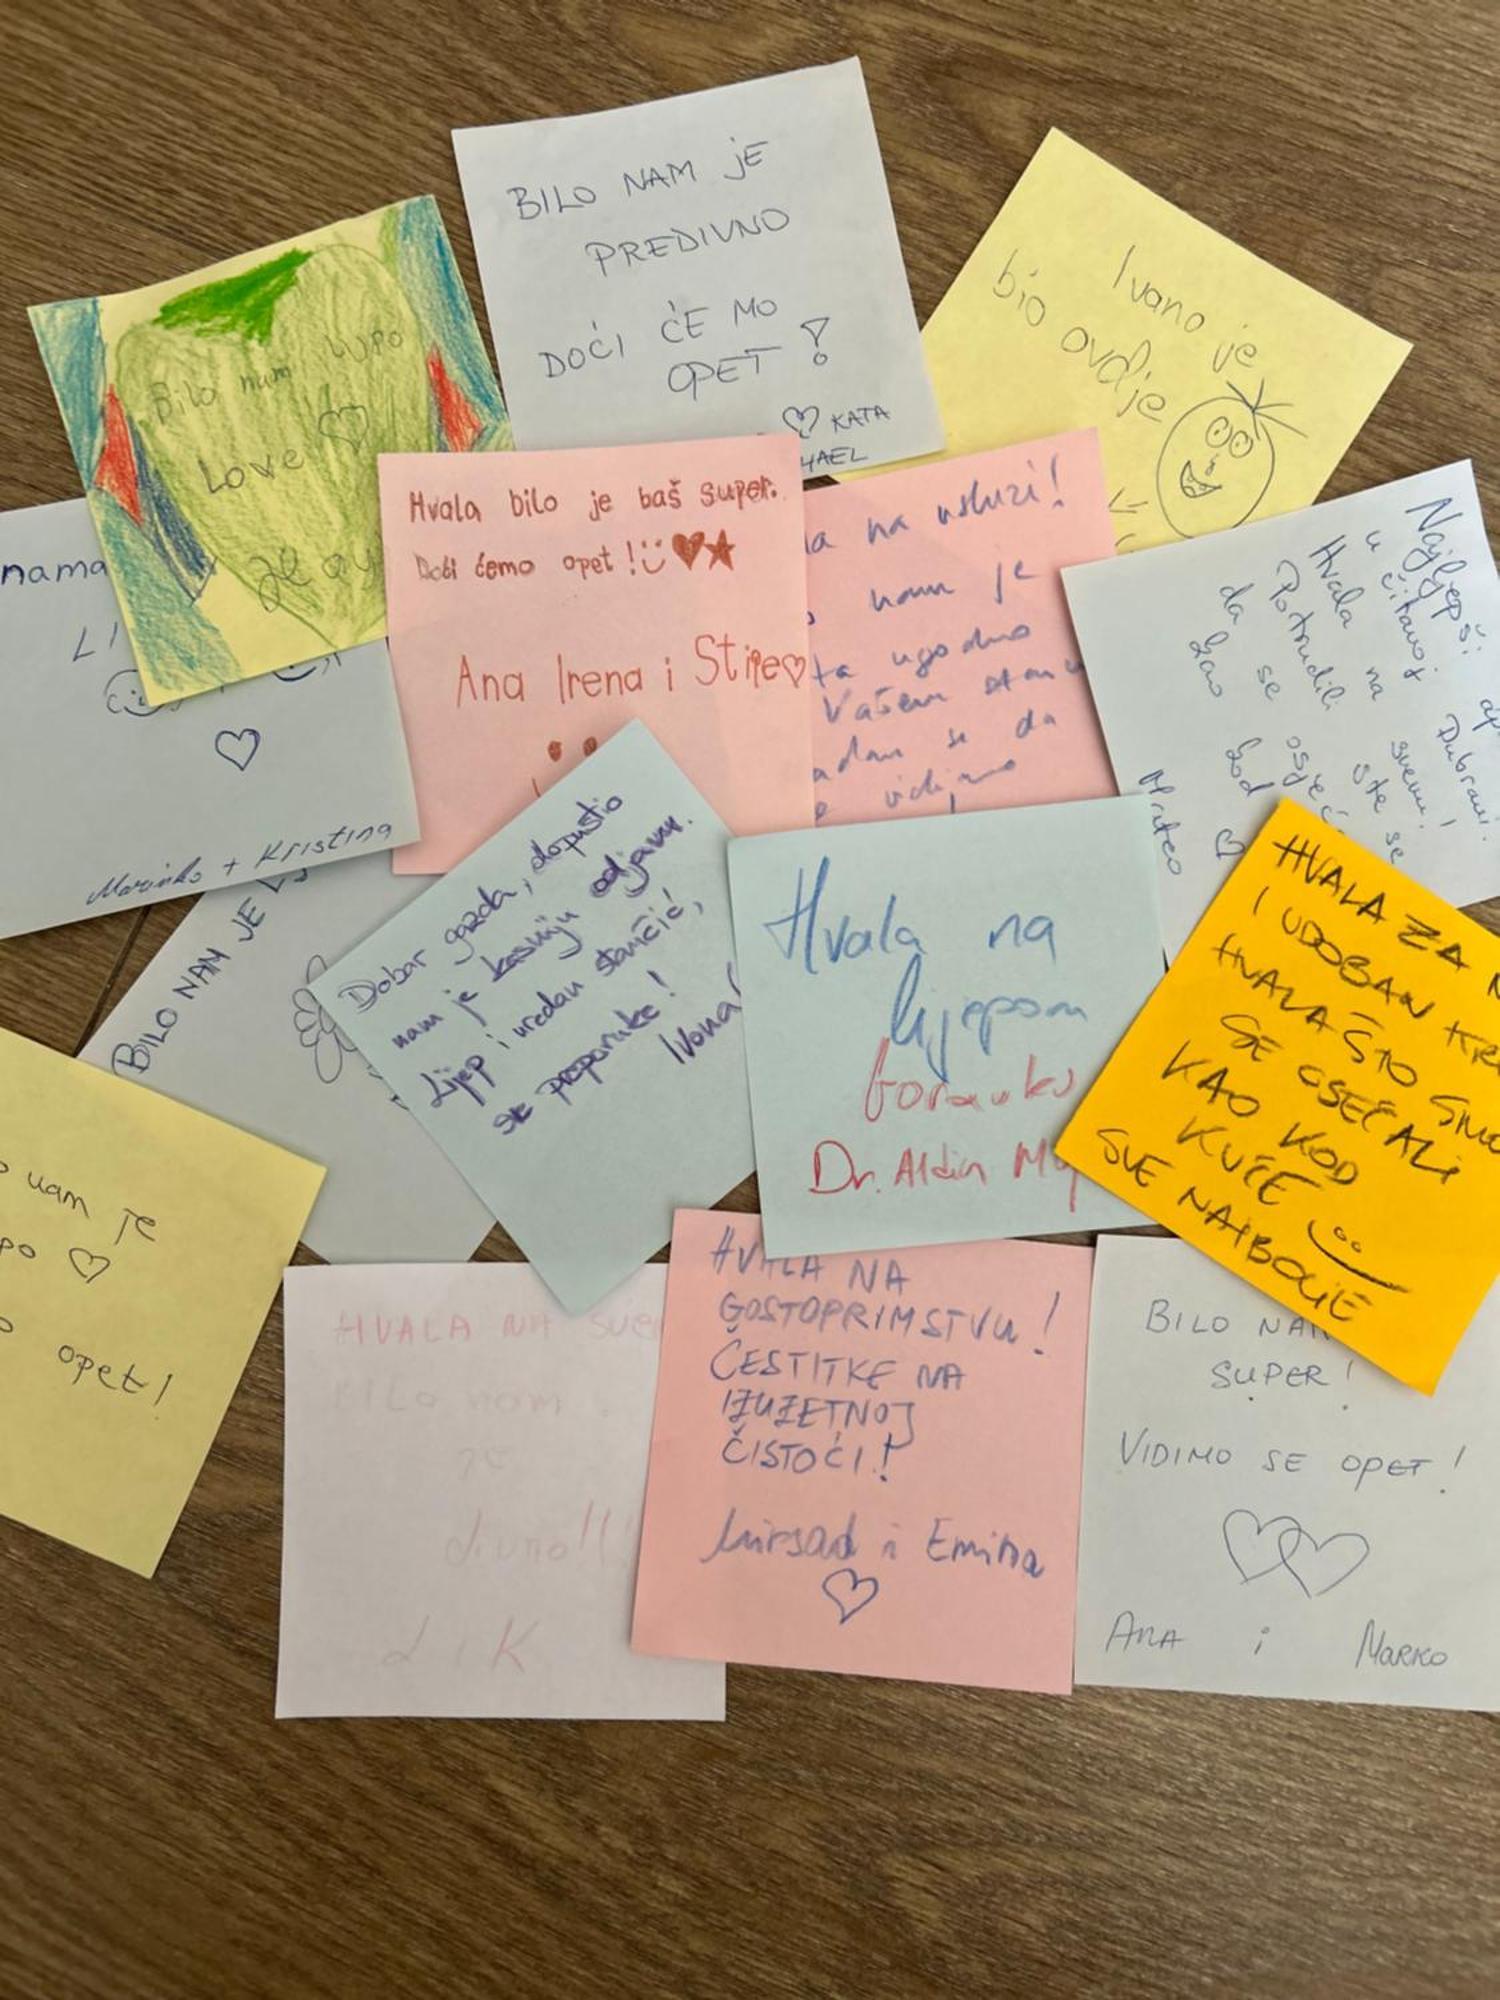 BILO NAM JE
PREDIVNO
DOĆI ĆE MO
OPET!
KATA
HAEL
Ivano je
bio ovdje
Bilo nam lupo
Love
Hvala bilo je baš super.
Doći ćemo opet!
Ana Irena i Stipe
na usluzi!
nam je
ugodno
Vašem stanu
se da
vidimo
Najljepši
u čitavoj
Dubravi.
Hvala na svemu!
Potrudili ste se
da se osjeć
kao kod
Mateo
nama
LI
Marinko + Kristina
BILO NAM JE
Dobar gazda, dopustio
nam je kasniju odjavu.
Lijep i uredan stančić,
sve preporuke!
Ivona
Hvala na
lijepom
boravku
Dr. Aldin
HVALA ZA
I UDOBAN
HVALA ŠTO SMO
SE OSEĆALI
KAO KOD
KUĆE
SVE NAJBOLJE
nam je
opet!
HVALA NA
BILO nam
JE
divno!!
L i K
HVALA NA
GOSTOPRIMSTVU!
ČESTITKE NA
IZUZETNOJ
ČISTOĆI!
Mirsad i Emina
BILO NAM
SUPER!
VIDIMO SE OPET!
ANA i MARKO